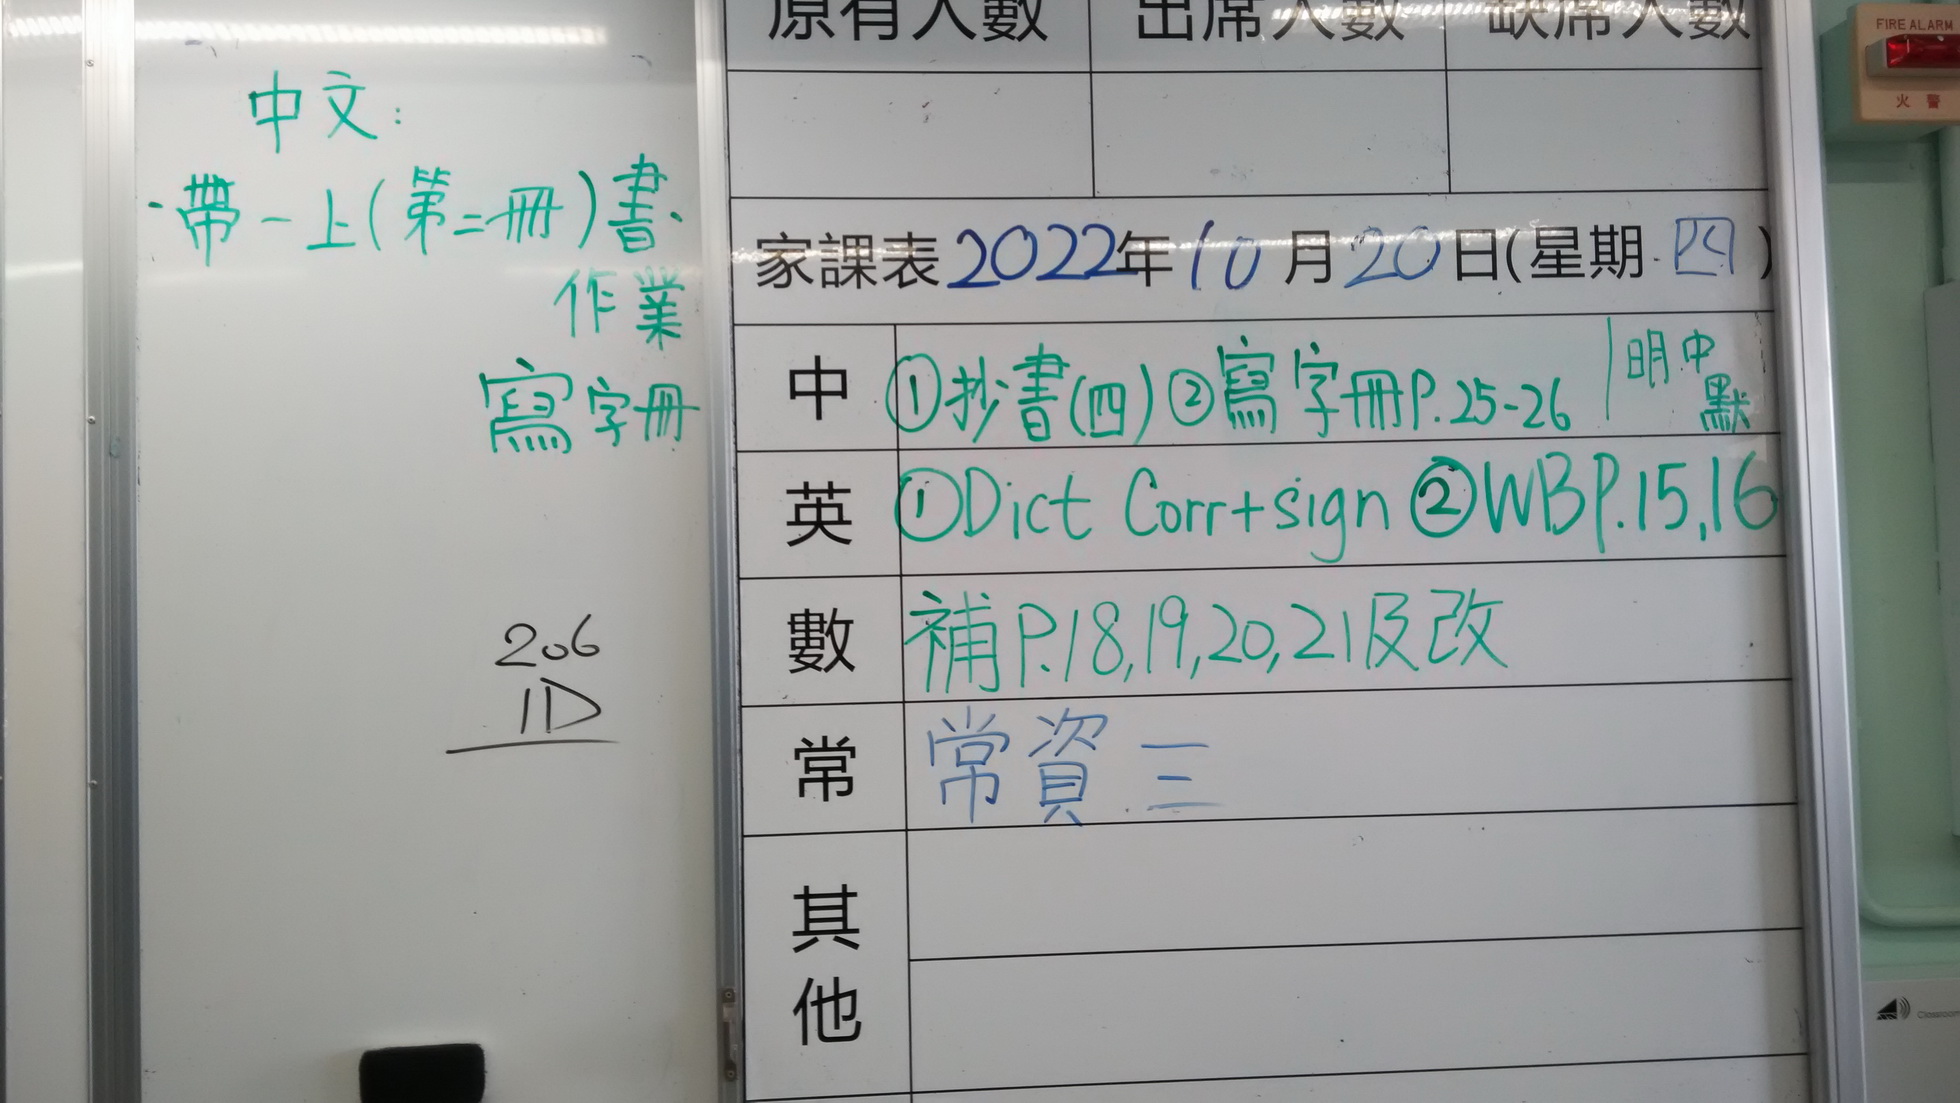 中文：
·帶一上(第二冊)書.
作業
寫字冊
206
1D
原有人數 出席人數 缺席人數
家課表2022年10月20日(星期四)
中 ①抄書(四) ②寫字冊P.25-26 | 明中默
英 ①Dict Corr+sign ②WB P.15,16
數 補P.18,19,20,21及改
常 常資三
其他
FIRE ALARM
火警
Classroom